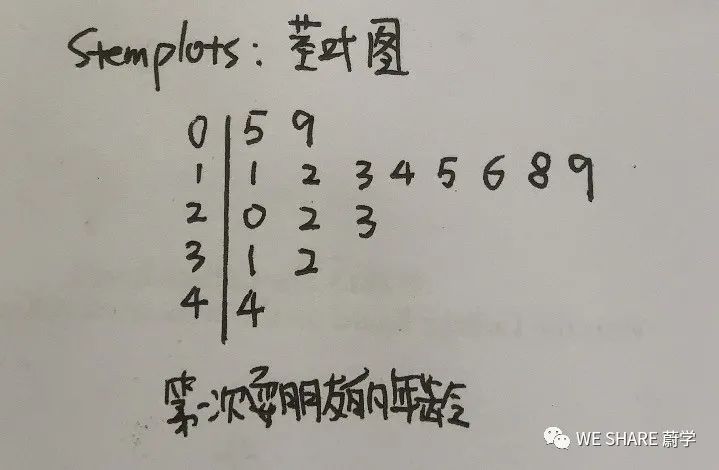 Stemplots: 茎叶图
0 | 5 9
1 | 1 2 3 4 5 6 8 9
2 | 0 2 3
3 | 1 2
4 | 4
第一次耍朋友的年龄
WE SHARE 蔚学